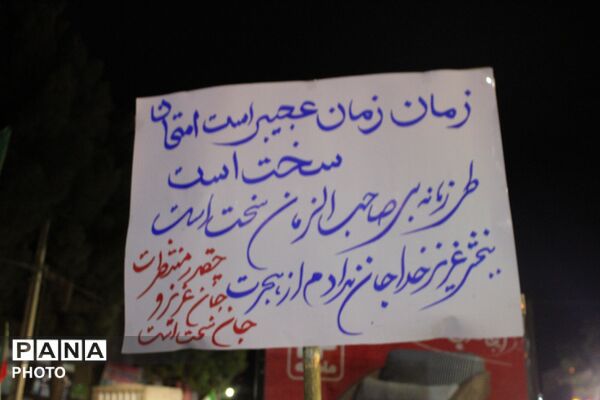 زمان زمان عجیبی است امتحان
سخت است
طی زمانه بی صاحب الزمان سخت است
ببخش عزیز خدا جان ندادم از هجرت
چقدر منتظرت
جان عزیز و
جان سخت است
PANA
PHOTO